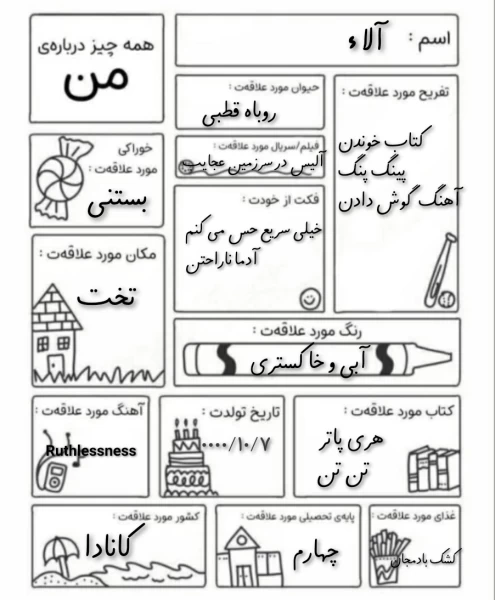 همه چیز درباره‌ی
من
اسم :
آلاء
حیوان مورد علاقه‌ت :
روباه قطبی
تفریح مورد علاقه‌ت :
کتاب خوندن
پینگ پنگ
آهنگ گوش دادن
خوراکی
مورد علاقه‌ت :
بستنی
فیلم/سریال مورد علاقه‌ت :
آلیس در سرزمین عجایب
فکت از خودت :
خیلی سریع حس می کنم
آدما ناراحتن
مکان مورد علاقه‌ت :
تخت
رنگ مورد علاقه‌ت :
آبی و خاکستری
آهنگ مورد علاقه‌ت :
Ruthlessness
تاریخ تولدت :
۰۰۰۰/۱۰/۷
کتاب مورد علاقه‌ت :
هری پاتر
تن تن
کشور مورد علاقه‌ت :
کانادا
پایه‌ی تحصیلی مورد علاقه‌ت :
چهارم
غذای مورد علاقه‌ت :
کشک بادمجان